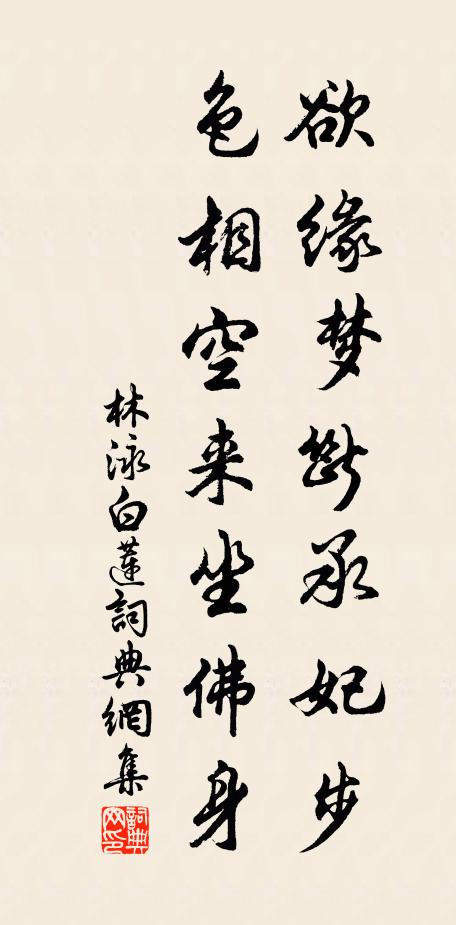 欲缘梦断承妃步
色相空来坐佛身
林泳白莲詞典網集
詞典网印